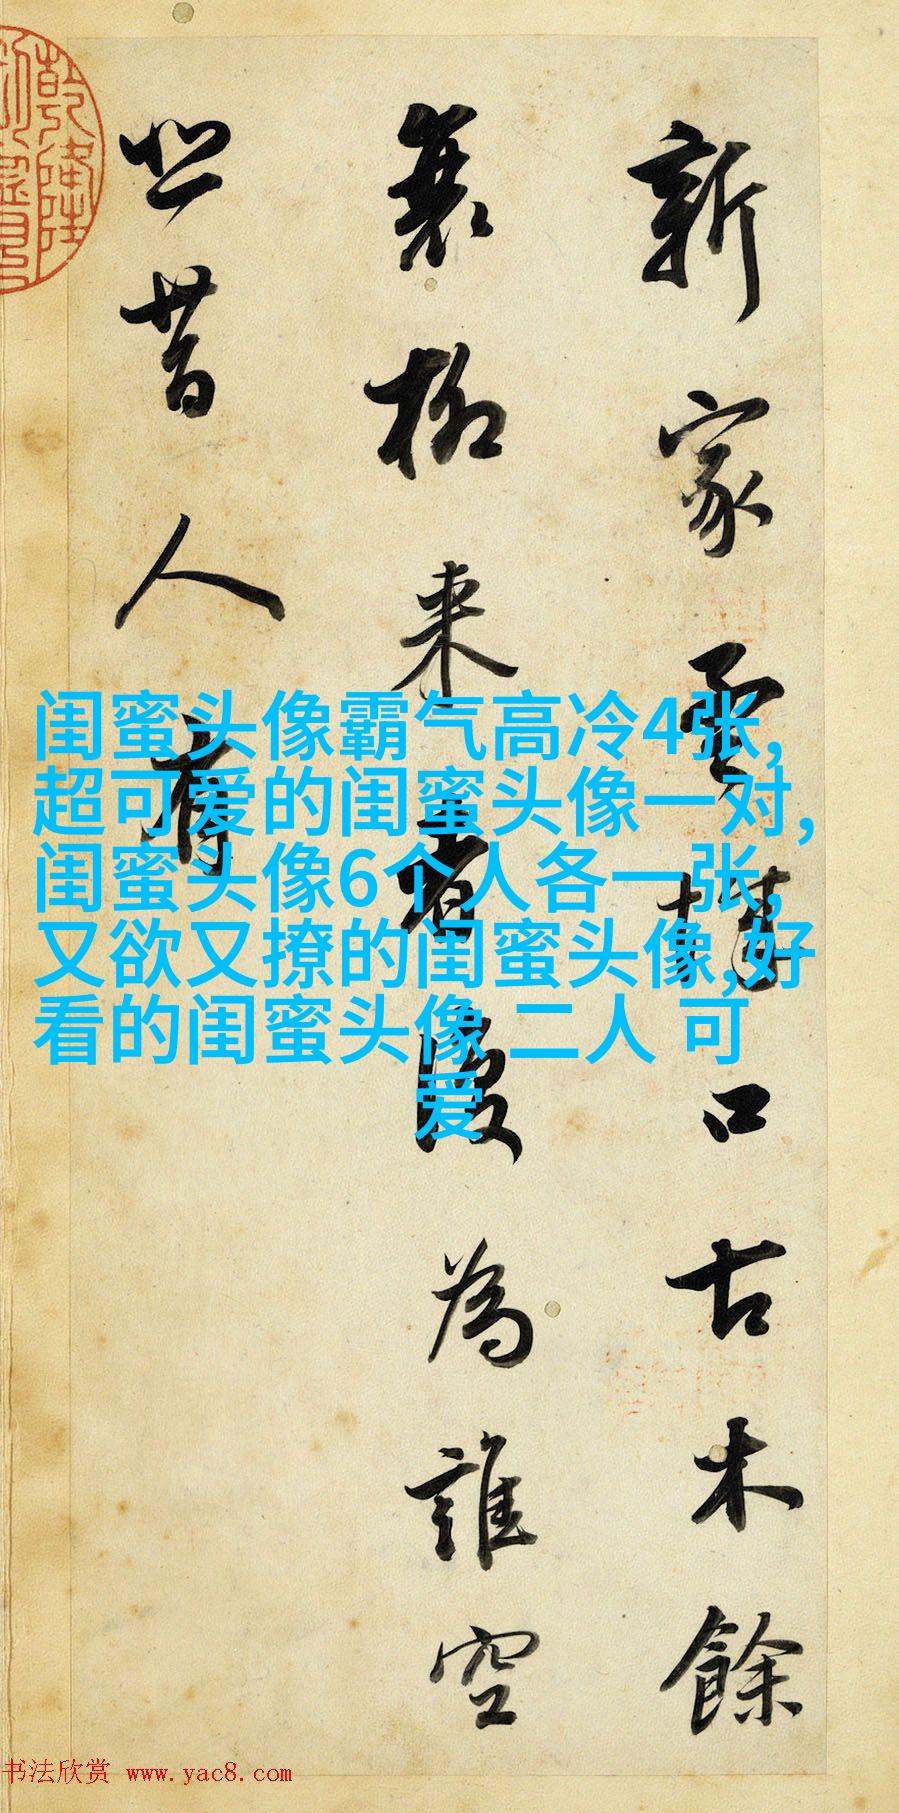 新家孟城口古木餘
衰柳来者復為誰空
悲昔人有
乾隆
闺蜜头像霸气高冷4张,
超可爱的闺蜜头像一对,
闺蜜头像6个人各一张,
又欲又撩的闺蜜头像,好
看的闺蜜头像 二人 可
爱
书法欣赏 www.yac8.com